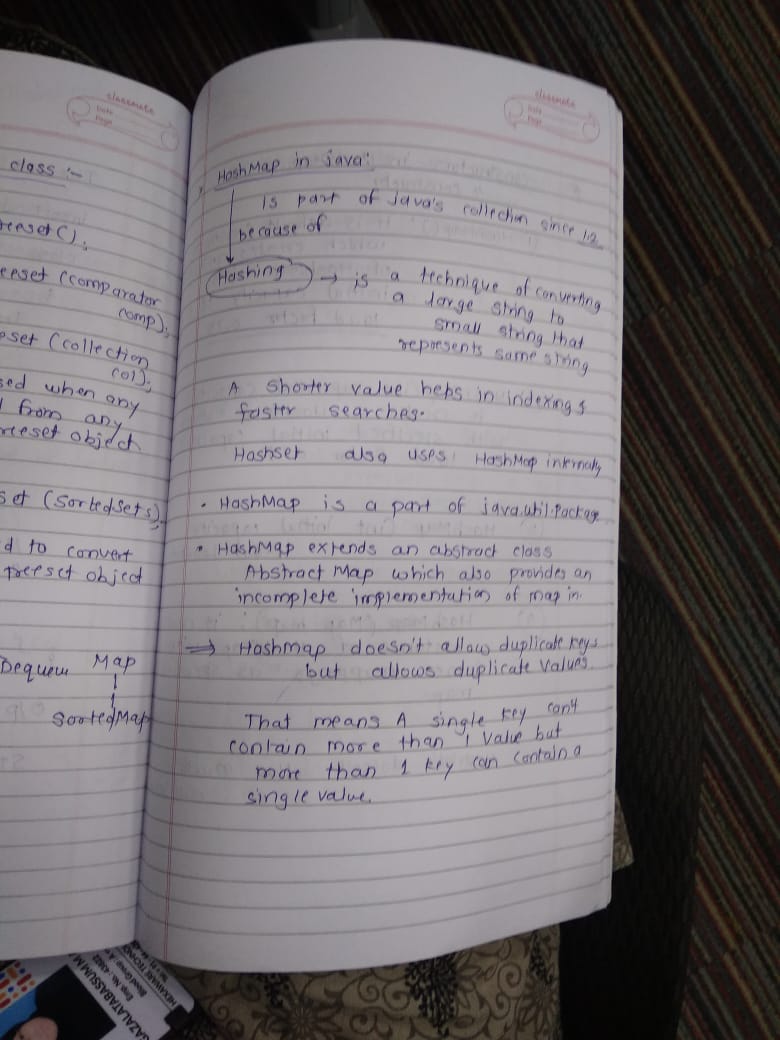 class :-
reeset();
eeset (comparator
comp);
eset (collection
col);
sed when any
l from any
reeset object
set (SortedSets);
d to convert
treeset object
Dequeue Map
SortedMap
classmate
Date
Page
classmate
Date
Page
HashMap in java:
Is part of Java's collection since 1.2
because of
Hashing → is a technique of converting
a large string to
small string that
represents same string
A Shorter value heps in indexing &
faster searches.
Hashset also uses HashMap internally
• HashMap is a part of java.util.Package
• HashMap extends an abstract class
Abstract Map which also provides an
incomplete implementation of map in.
⇒ Hashmap doesn't allow duplicate keys
but allows duplicate values.
That means A single key can't
contain more than 1 value but
more than 1 key can contain a
single value.
GAZALATABASSUM M
Empl. No. - 43602
Blood Group : A